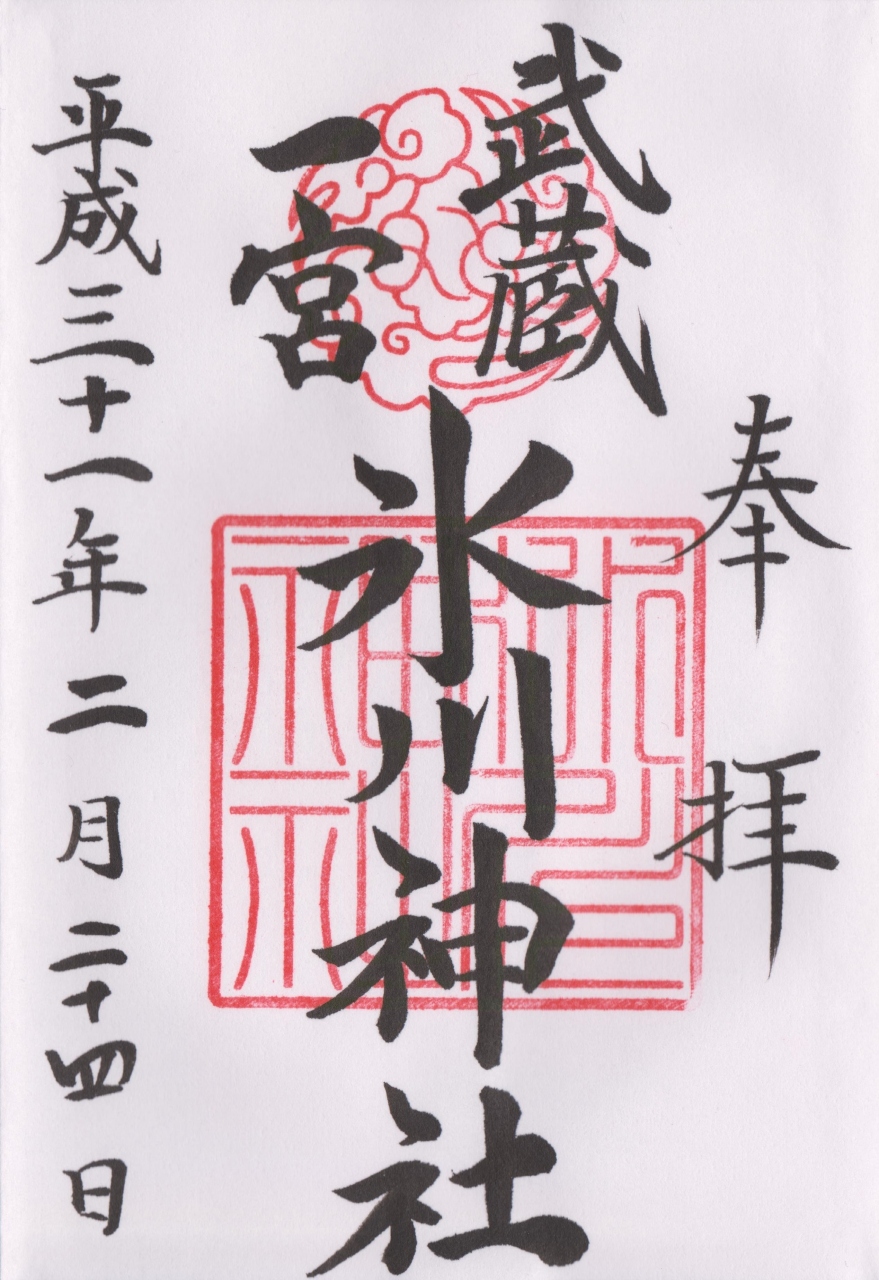 奉拝
武蔵
一宮
氷川神社
平成三十一年二月二十四日